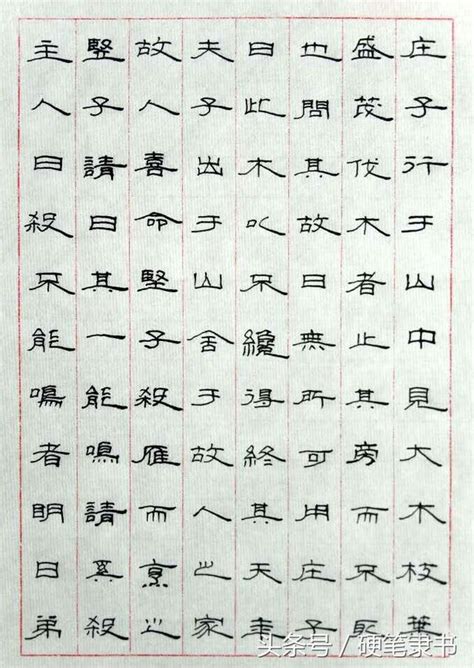 庄子行于山中見大木枝葉
盛茂伐木者止其旁而不取
也問其故曰無所可用庄子
曰此木以不纔得終其天年
夫子出于山舍于故人之家
故人喜命竪子殺雁而烹之
竪子請曰其一能鳴請奚殺
主人曰殺不能鳴者明日弟
头条号／硬笔隶书